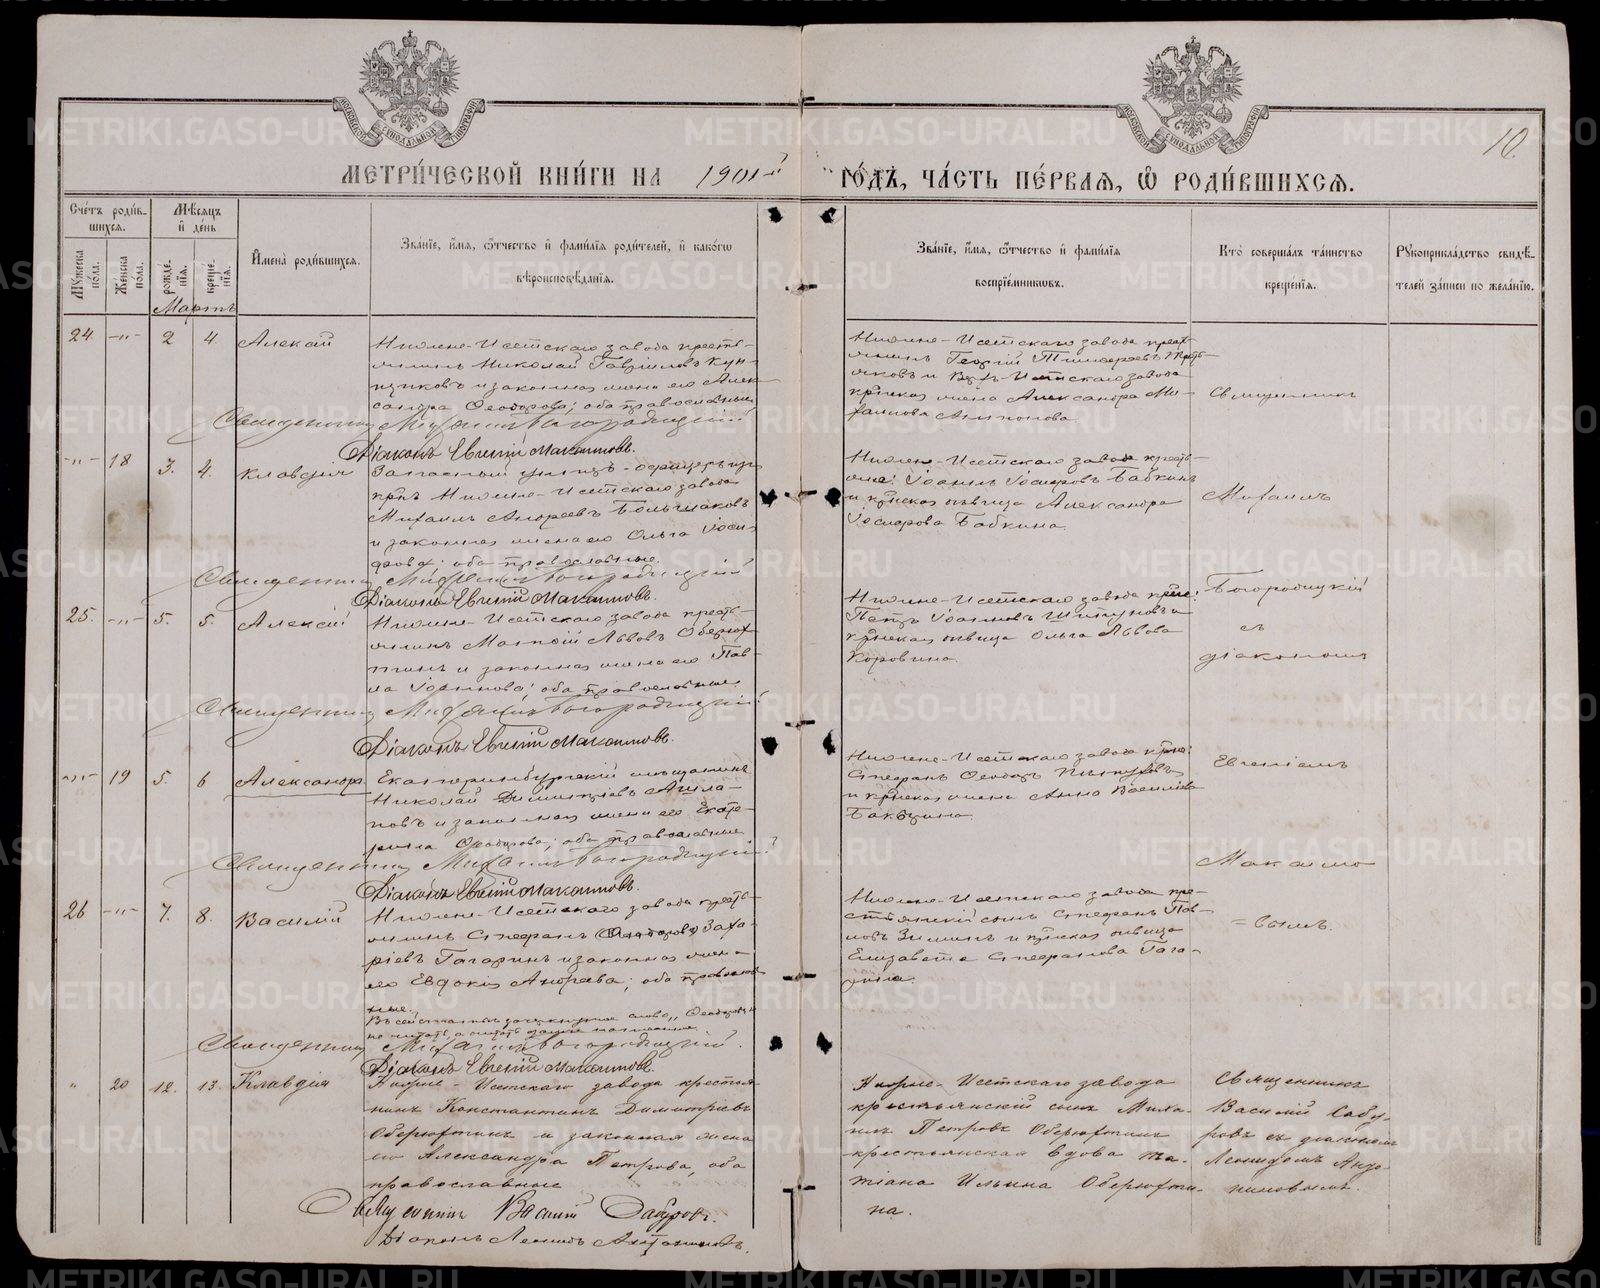 METRIKI.GASO-URAL.RU
МОСКОВСКОЙ СѴНОДАЛЬНОЙ ТИПОГРАФІИ
МОСКОВСКОЙ СѴНОДАЛЬНОЙ ТИПОГРАФІИ
10.
МЕТРИ́ЧЕСКОЙ КНИ́ГИ НА 1901й ГО́ДЪ, ЧА́СТЬ ПЕ́РВАѦ, Ѡ РОДИ́ВШИХСѦ.
Сче́тъ роди́в-
шихсѧ.
Мꙋжеска по́ла.
Же́нска по́ла.
Мѣ́сѧцъ
и҆ де́нь
рожде́-
нїѧ.
креще́-
нїѧ.
И҆мена̀ роди́вшихсѧ.
Зва́нїе, и҆́мѧ, ѻ҆́тчество и҆ фами́лїѧ роди́телей, и҆ како́гѡ
вѣроисповѣ́данїѧ.
Зва́нїе, и҆́мѧ, ѻ҆́тчество и҆ фами́лїѧ
воспрїе́мникѡвъ.
Кто̀ соверша́лъ та́инство
креще́нїѧ.
Рꙋкоприкла́дство свидѣ́-
телей за́писи по жела́нїю.
Мартъ
24. -"- 2 4 Алексій
Нижне-Исетскаго завода кресть-
янинъ Николай Гавріиловъ
и законная жена его Алек-
сандра Ѳеодорова; оба православные
Священникъ Михаилъ Богородицкій
Діаконъ Евгеній Максимовъ.
Нижне-Исетскаго завода крест-
янинъ Георгій Тимоѳеевъ Треть-
яковъ и Верхъ-Исетскаго завода
кр-нская жена Александра Ми-
хаилова Антонова.
Священникъ
-"- 18 3. 4. Клавдія
Запасный унтеръ-офицеръ изъ
кр-нъ Нижне-Исетскаго завода
Михаилъ Андреевъ Большаковъ
и законная жена его Ольга Іоси-
фова; оба православные.
Священникъ Михаилъ Богородицкій
Діаконъ Евгеній Максимовъ.
Нижне-Исетскаго завода кресть-
янинъ Іоаннъ Іосифовъ Бабкинъ
и кр-нская дѣвица Александра
Іосифова Бабкина.
Михаилъ
25. -"- 5. 5. Алексій
Нижне-Исетскаго завода кресть-
янинъ Матѳій Львовъ Оберюх-
тинъ и законная жена его Пав-
ла Іоаннова; оба православные
Священникъ Михаилъ Богородицкій
Діаконъ Евгеній Максимовъ.
Нижне-Исетскаго завода
Петръ Іоанновъ Шипуновъ и
кр-нская дѣвица Ольга Львова
Коровина.
Богородицкій
съ
діакономъ
-"- 19 5. 6 Александра
Екатеринбургскій мѣщанинъ
Николай Димитріевъ
и законная жена его Екате-
рина Ѳеодорова; оба православные
Священникъ Михаилъ Богородицкій
Діаконъ Евгеній Максимовъ.
Нижне-Исетскаго завода
Стефанъ Ѳеодоръ
и кр-нская жена Анна Василіева
Евгеніемъ
Максимо-
26 -"- 7. 8. Василій
Нижне-Исетскаго завода кресть-
янинъ Стефанъ (Ѳеодоровъ) Заха-
ріевъ Гагаринъ и законная жена
его Евдокія Андреева; оба православ-
ные.
Въ сей статьѣ зачеркнутое слово „Ѳеодоровъ"
не читать
Священникъ Михаилъ Богородицкій.
Діаконъ Евгеній Максимовъ.
Нижне-Исетскаго завода кре-
стьянскій сынъ Стефанъ Пав-
ловъ Зиминъ и кр-нская дѣвица
Елизавета Стефанова Гага-
рина.
=вымъ.
" 20 12. 13. Клавдія
Нижне-Исетскаго завода крестья-
нинъ Константинъ Димитріевъ
Оберюхтинъ и законная жена
его Александра Петрова, оба
православные
Священникъ Василій Сабуровъ.
Діаконъ Леонидъ Антониновъ.
Нижне-Исетскаго завода
крестьянскій сынъ Миха-
илъ Петровъ Оберюхтинъ
крестьянская вдова Та-
тіана Ильина Оберюхти-
на.
Священникъ
Василій Сабу-
ровъ съ діакономъ
Леонидомъ Анто-
ниновымъ.